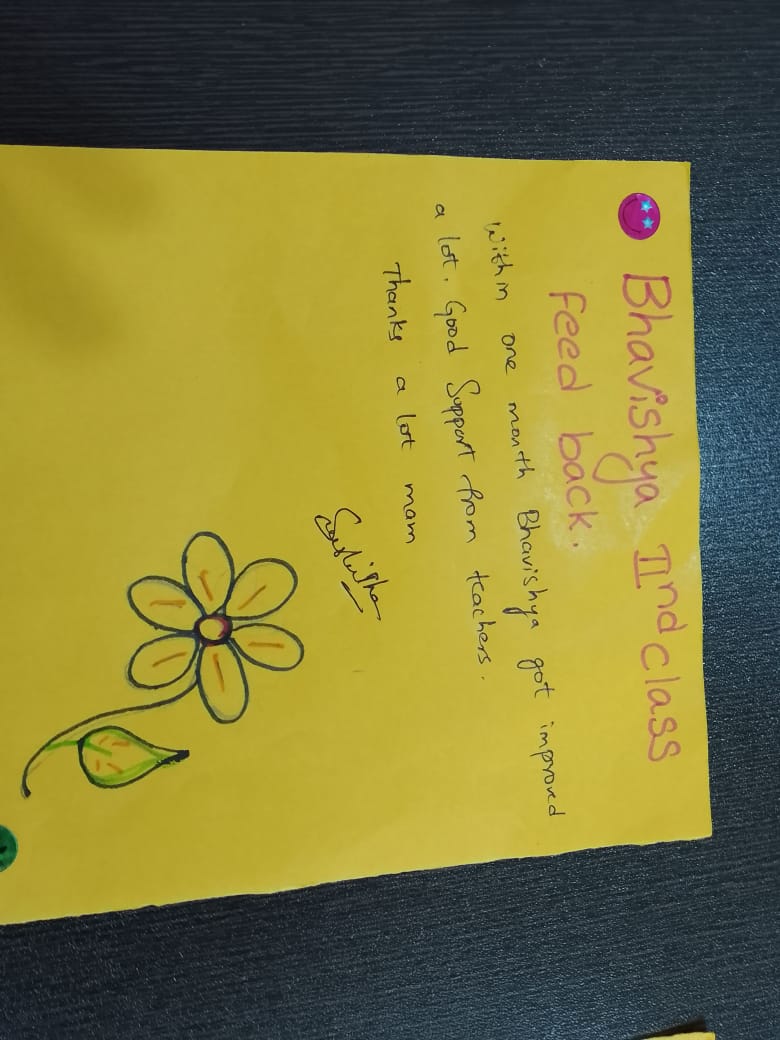 Bhavishya IInd class
feed back.
Within one month Bhavishya got improved
a lot. Good Support from teachers.
Thanks a lot mam